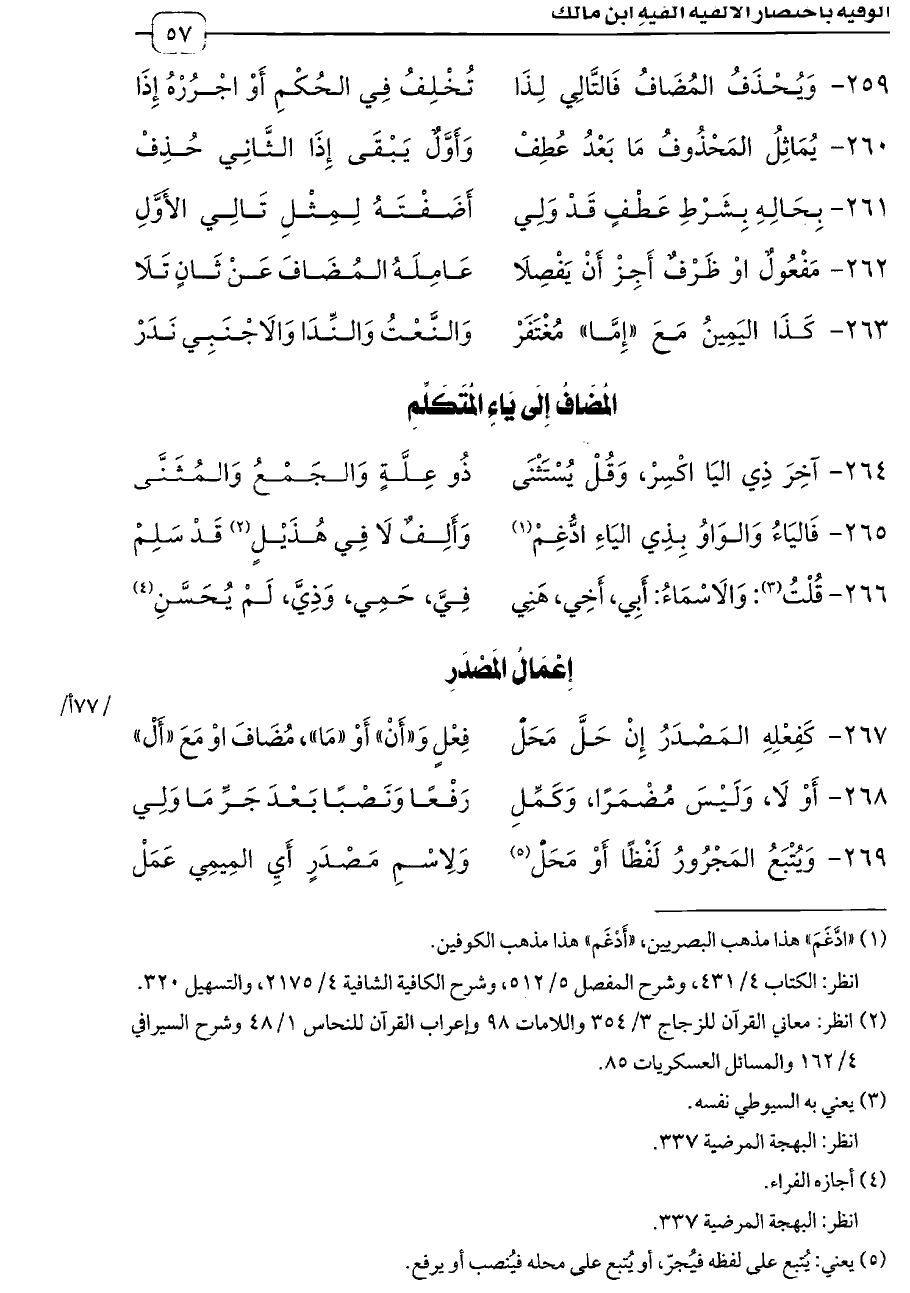 الوفية باختصار الألفية ألفية ابن مالك
٥٧
٢٥٩- وَيُحْذَفُ المُضَافُ فَالتَّالِي لِذَا تُخْلِفُ فِي الحُكْمِ أَوْ اجْرُرْهُ إِذَا
٢٦٠- يُمَاثِلُ المَحْذُوفُ مَا بَعْدُ عُطِفْ وَأَوَّلٌ يَبْقَى إِذَا الثَّانِي حُذِفْ
٢٦١- بِحَالِهِ بِشَرْطِ عَطْفٍ قَدْ وَلِي أَضَفْتَهُ لِمِثْلِ تَالِي الأَوَّلِ
٢٦٢- مَفْعُولٌ اوْ ظَرْفٌ أَجِزْ أَنْ يَفْصِلَا عَامِلَهُ المُضَافَ عَنْ ثَانٍ تَلَا
٢٦٣- كَذَا اليَمِينُ مَعَ «إِمَّا» مُغْتَفَرْ وَالنَّعْتُ وَالنِّدَا وَالَاجْنَبِي نَدَرْ
المُضَافُ إِلَى يَاءِ المُتَكَلِّمِ
٢٦٤- آخِرَ ذِي اليَا اكْسِرْ، وَقُلْ يُسْتَثْنَى ذُو عِلَّةٍ وَالجَمْعُ وَالمُثَنَّى
٢٦٥- فَاليَاءُ وَالوَاوُ بِذِي اليَاءِ ادُّغِمْ(١) وَأَلِفٌ لَا فِي هُذَيْلٍ(٢) قَدْ سَلِمْ
٢٦٦- قُلْتُ(٣): وَالَاسْمَاءُ: أَبِي، أَخِي، هَنِي فِيَّ، حَمِي، وَذِيَّ، لَمْ يُحَسَّنِ(٤)
إِعْمَالُ المَصْدَرِ
/٧٧أ/
٢٦٧- كَفِعْلِهِ المَصْدَرُ إِنْ حَلَّ مَحَلّْ فِعْلٍ وَ«أَنْ» أَوْ «مَا»، مُضَافَ اوْ مَعَ «أَلْ»
٢٦٨- أَوْ لَا، وَلَيْسَ مُضْمَرًا، وَكَمِّلِ رَفْعًا وَنَصْبًا بَعْدَ جَرِّ مَا وَلِي
٢٦٩- وَيُتْبَعُ المَجْرُورُ لَفْظًا أَوْ مَحَلّْ(٥) وَلِاسْمِ مَصْدَرٍ أَيِ المِيمِي عَمَلْ
(١) «ادَّغَمَ» هذا مذهب البصريين، «أَدْغَم» هذا مذهب الكوفين.
انظر: الكتاب ٤/ ٤٣١، وشرح المفصل ٥/ ٥١٢، وشرح الكافية الشافية ٤/ ٢١٧٥، والتسهيل ٣٢٠.
(٢) انظر: معاني القرآن للزجاج ٣/ ٣٥٤ واللامات ٩٨ وإعراب القرآن للنحاس ١/ ٤٨ وشرح السيرافي
٤/ ١٦٢ والمسائل العسكريات ٨٥.
(٣) يعني به السيوطي نفسه.
انظر: البهجة المرضية ٣٣٧.
(٤) أجازه الفراء.
انظر: البهجة المرضية ٣٣٧.
(٥) يعني: يُتبع على لفظه فيُجرّ، أو يُتبع على محله فيُنصب أو يرفع.